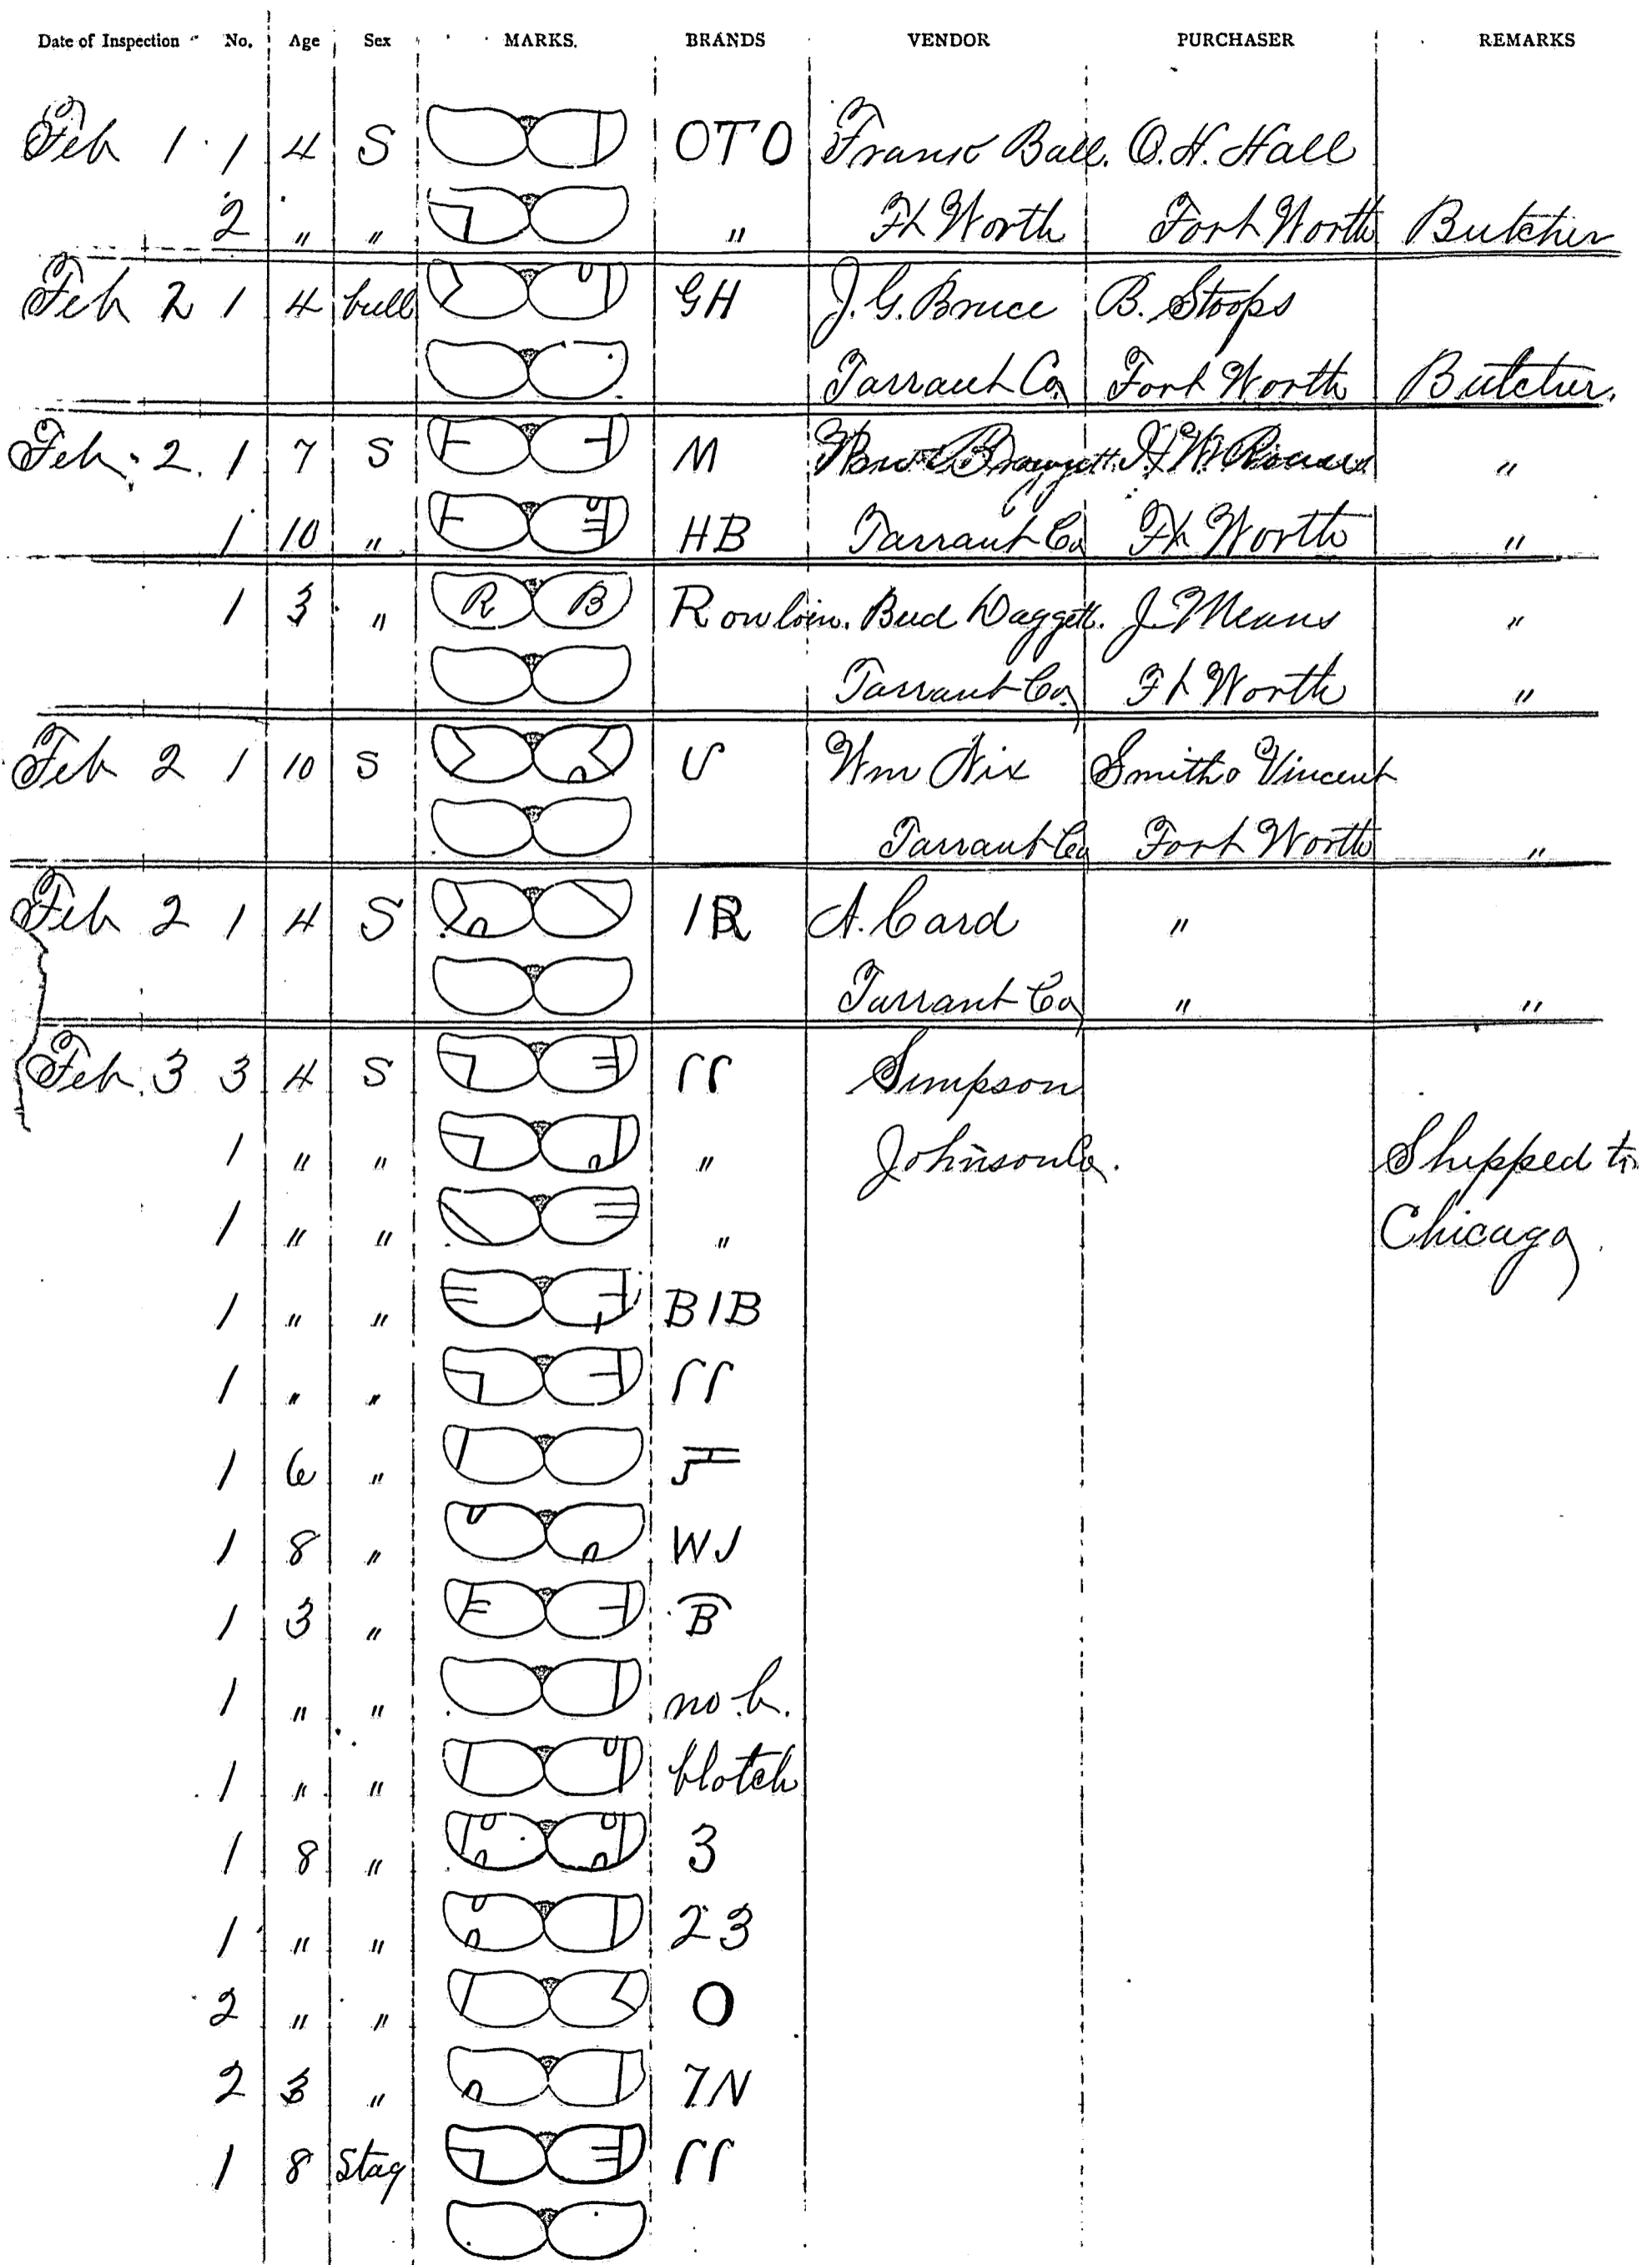 Date of Inspection No. Age Sex MARKS. BRANDS VENDOR PURCHASER REMARKS
Feb 1 1 4 S OTO Frank Ball. O. H. Hall
2 " " " Ft Worth Fort Worth Butcher
Feb 2 1 4 bull GH J. G. Bruce B. Stoops
Tarrant Co Fort Worth Butcher.
Feb. 2. 1 7 S M H. W. "
1 10 " HB Tarrant Co Ft Worth "
1 3 " R B Rowloin. Bud Daggett. J. Means "
Tarrant Co Ft Worth "
Feb 2 1 10 S U Wm Nix Smith & Vincent
Tarrant Co Fort Worth "
Feb 2 1 4 S A. Card "
Tarrant Co " "
Feb. 3 3 4 S ՐՐ Simpson
1 " " " Johnson Co. Shipped to
1 " " " Chicago
1 " " B1B
1 " " ՐՐ
1 6 "
1 8 " WJ
1 3 " B
1 " " no b.
1 " " blotch
1 8 " 3
1 " " 23
2 " " O
2 3 " 7N
1 8 Stag ՐՐ